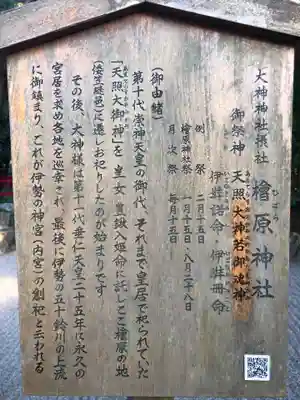 大神神社摂社 檜原神社
御祭神 天照大神若御魂神
伊弉諾命・伊弉冊命
例祭 二月十五日
檜原神社祭 一月十五日、八月二十八日
月次祭 毎月十五日
(御由緒)
第十代崇神天皇の御代、それまで皇居で祀られていた
「天照大御神」を皇女豊鍬入姫命に託しここ檜原の地
(倭笠縫邑)に遷しお祀りしたのが始まりです
その後、大神様は第十一代垂仁天皇二十五年に永久の
宮居を求め各地を巡幸され、最後に伊勢の五十鈴川の上流
に御鎮まり、これが伊勢の神宮(内宮)の創祀と云われる